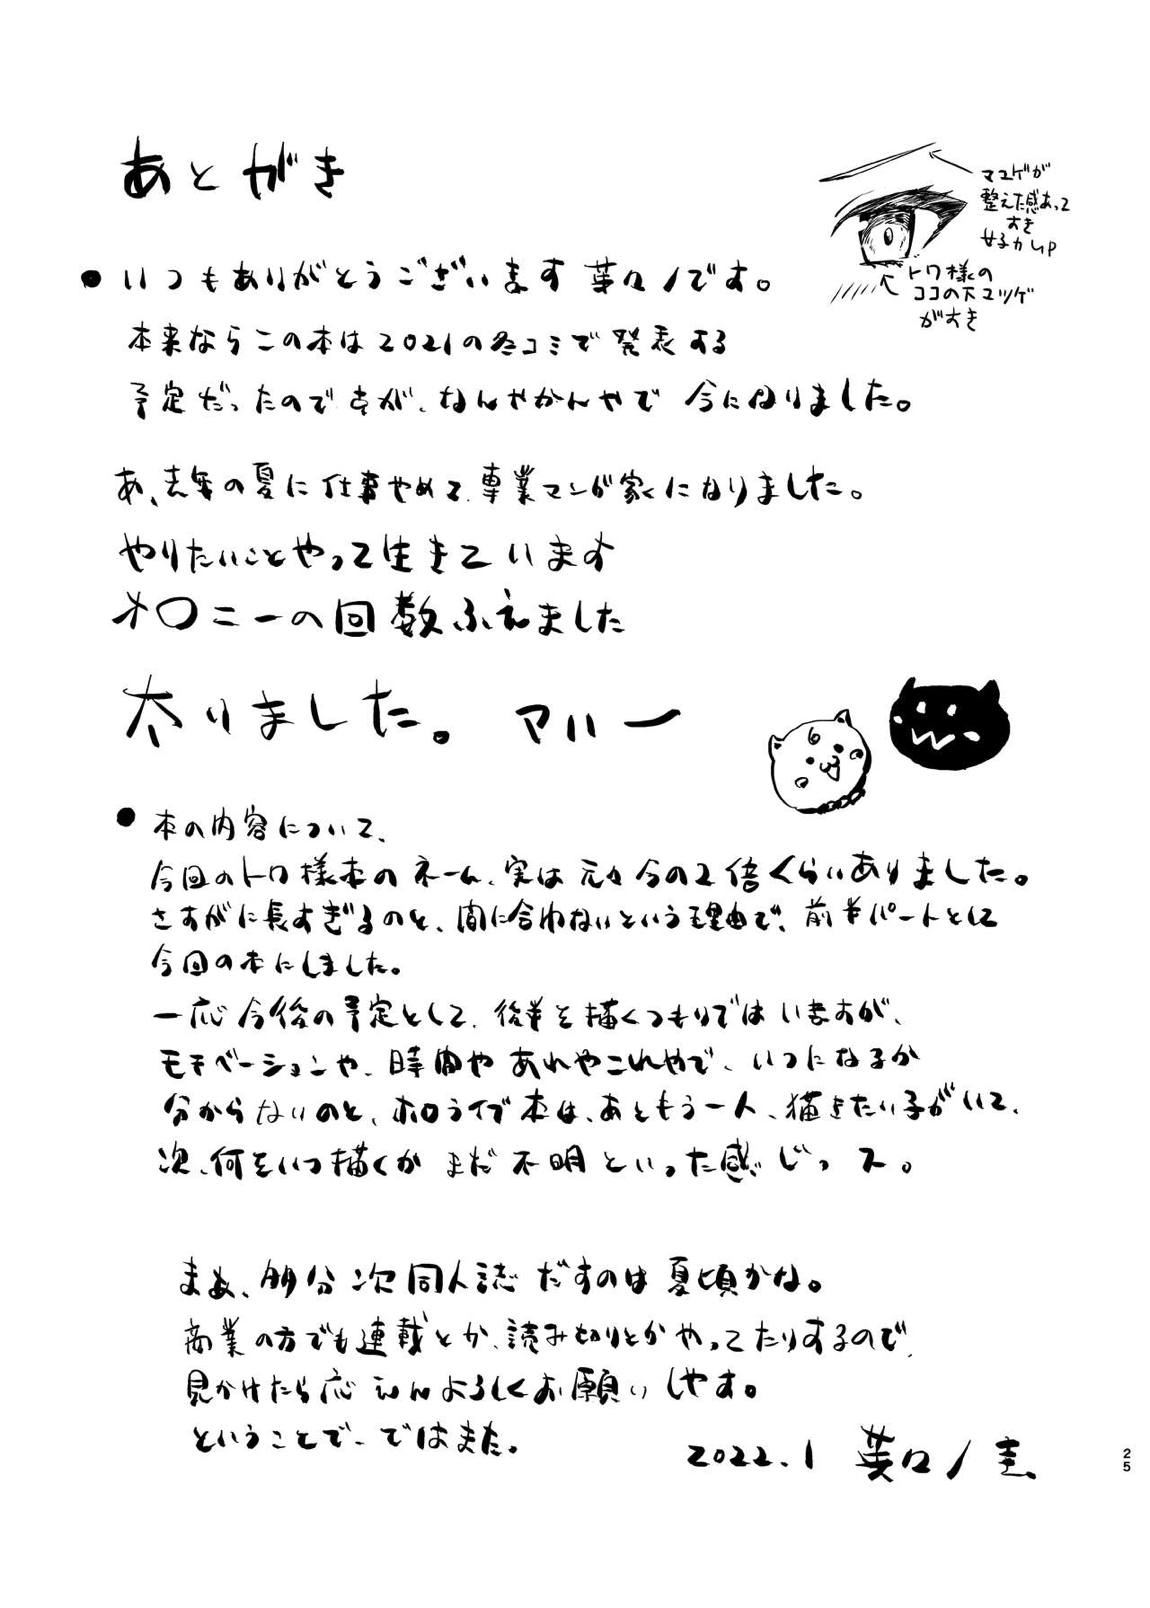 あとがき
マユゲが
整えた感あって
すき
女子力UP
トワ様の
ココの下マツゲ
がすき
● いつもありがとうございます 葉々ノです。
本来ならこの本は2021の冬コミで発表する
予定だったのですが、なんやかんやで 今になりました。
あ、去年の夏に仕事やめて、専業マンガ家になりました。
やりたいことやって生きています
オ〇ニーの回数ふえました
太りました。 マハー
● 本の内容について、
今回のトワ様本のネーム、実は元々今の2倍くらいありました。
さすがに長すぎるのと、間に合わないという理由で、前半パートとして
今回の本にしました。
一応今後の予定として、後半を描くつもりではいますが、
モチベーションや、時間や あれやこれやで、いつになるか
分からないのと、ホロライブ本は、あともう一人、描きたい子がいて、
次、何をいつ描くか まだ 不明 といった感じっス。
まぁ、多分次同人誌 だすのは 夏頃かな。
商業の方でも連載とか、読み切りとかやってたりするので、
見かけたら応えんよろしくお願いしやす。
ということで、ではまた。
2022.1 葉々ノ圭
25